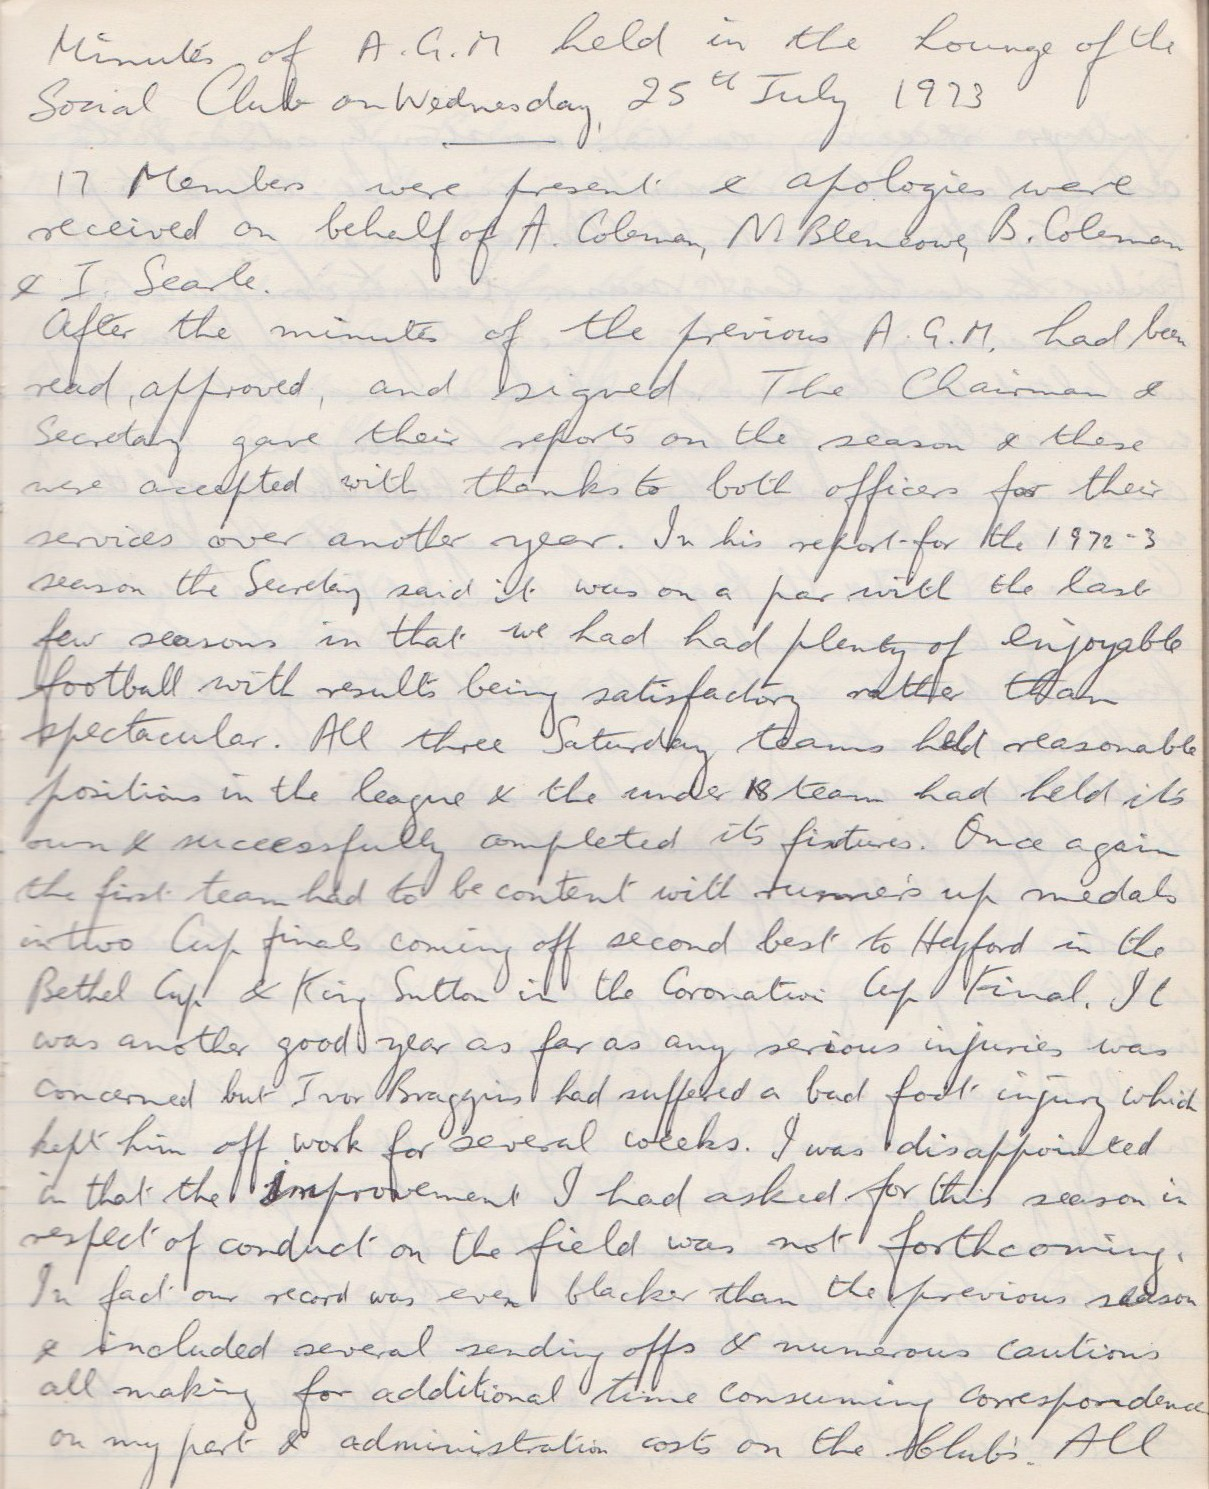 Minutes of A.G.M held in the Lounge of the
Social Club on Wednesday, 25th July 1973
17 Members were present & apologies were
received on behalf of A. Coleman, M Blencowe, B. Coleman
& I. Searle.
After the minutes of the previous A.G.M. had been
read, approved, and signed The Chairman &
Secretary gave their reports on the season & these
were accepted with thanks to both officers for their
services over another year. In his report for the 1972-3
season the Secretary said it was on a par with the last
few seasons in that we had had plenty of enjoyable
football with results being satisfactory rather than
spectacular. All three Saturday teams held reasonable
positions in the league & the under 18 team had held it's
own & successfully completed it's fixtures. Once again
the first team had to be content with runner's up medals
in two Cup finals coming off second best to Heyford in the
Bethel Cup & King Sutton in the Coronation Cup Final. It
was another good year as far as any serious injuries was
concerned but Ivor Braggins had suffered a bad foot injury which
kept him off work for several weeks. I was disappointed
in that the improvement I had asked for this season in
respect of conduct on the field was not forthcoming.
In fact our record was even blacker than the previous season
& included several sending offs & numerous cautions
all making for additional time consuming correspondence
on my part & administration costs on the Club's. All